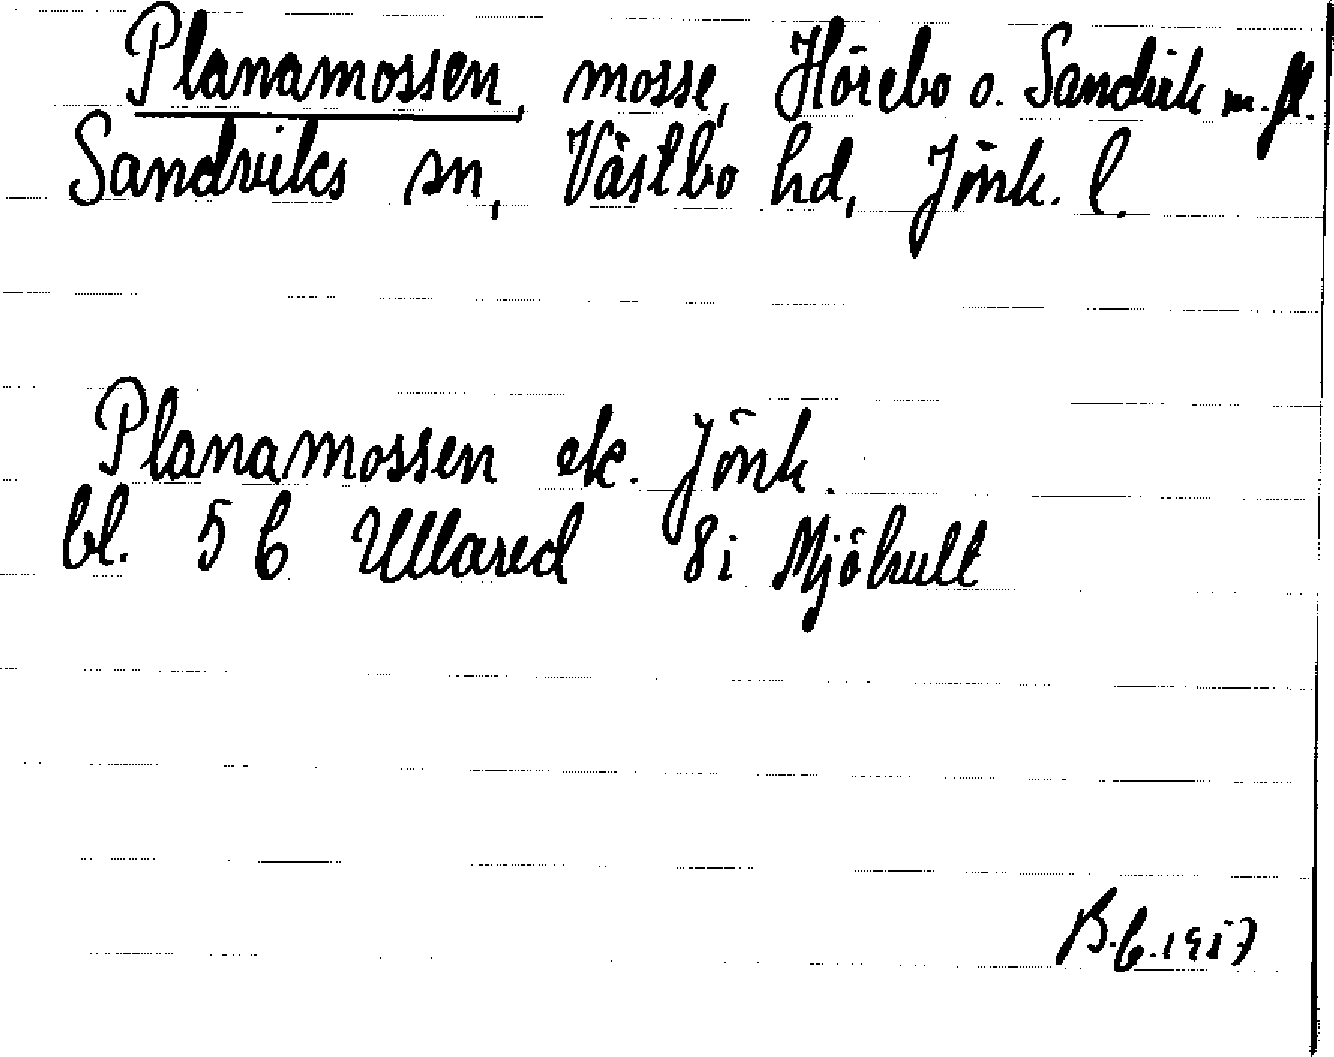 Planamossen, mosse, Hörebo o. Sandvik m.fl.
Sandviks sn, Västbo hd, Jönk. l.
Planamossen ek. Jönk.
bl. 5 6 Ullared 8i Mjöhult
B.b.1957